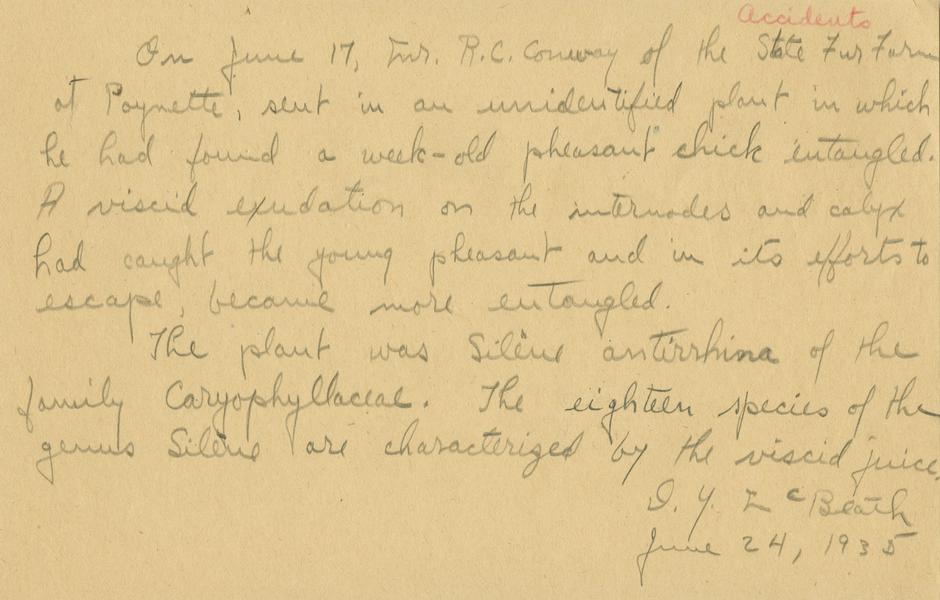 Accidents
On June 17, Mr. R.C. Conway of the State Fur Farm
at Poynette, sent in an unidentified plant in which
he had found a week-old pheasant chick entangled.
A viscid exudation on the internodes and calyx
had caught the young pheasant and in its efforts to
escape, became more entangled.
The plant was Silene antirrhina of the
family Caryophyllaceae. The eighteen species of the
genus Silene are characterized by the viscid juice.
D. Y. McBeath
June 24, 1935